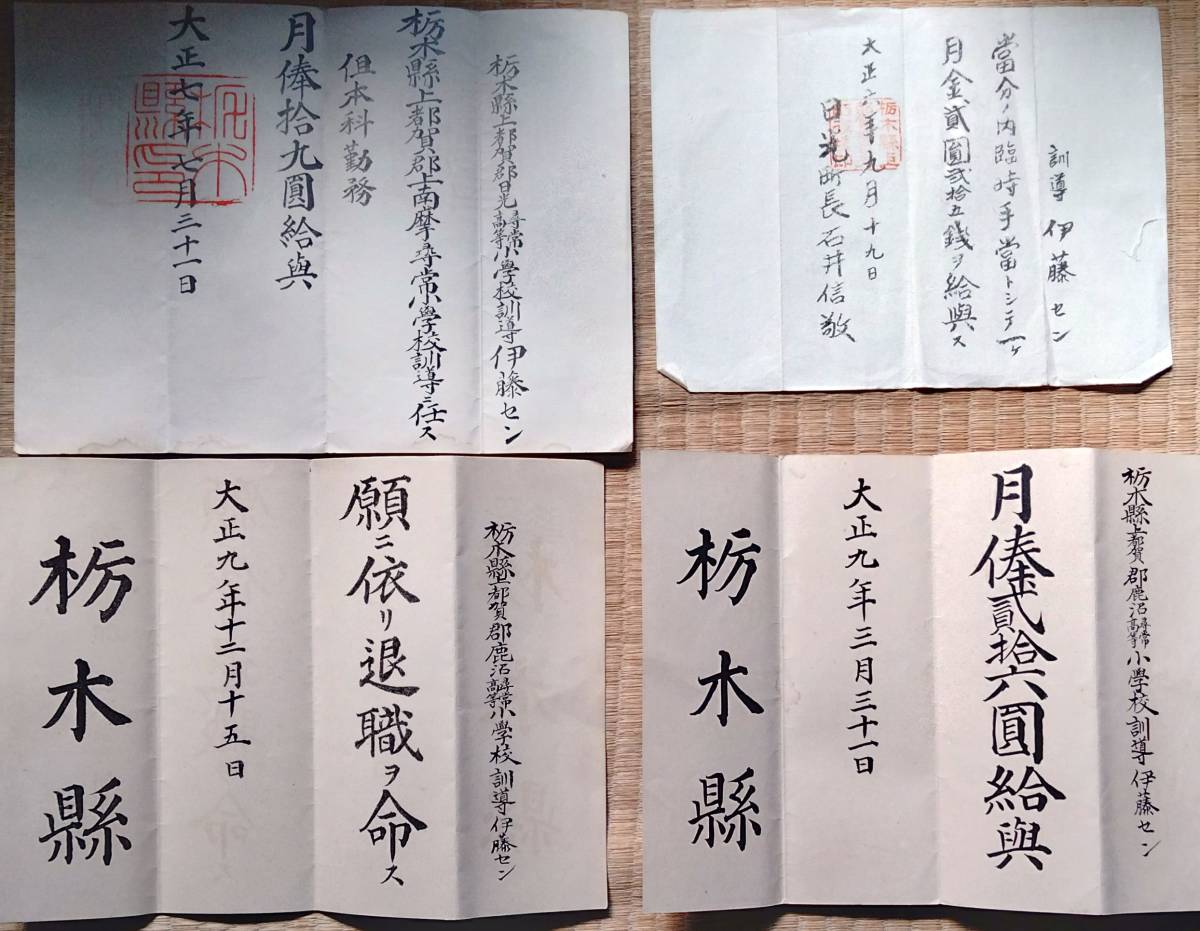 栃木縣上都賀郡日光尋常高等小學校訓導 伊藤セン
栃木縣上都賀郡上南摩尋常小學校訓導ニ任ス
但本科勤務
月俸拾九圓給與
大正七年七月三十一日
栃木縣印
訓導 伊藤セン
當分ノ内臨時手當トシテ一ヶ
月金貳圓貳拾五錢ヲ給與ス
大正六年九月十九日
日光町長石井信敬
栃木縣上都賀郡鹿沼尋常高等小學校訓導伊藤セン
願ニ依リ退職ヲ命ス
大正九年十二月十五日
栃木縣
栃木縣上都賀郡鹿沼尋常高等小學校訓導伊藤セン
月俸貳拾六圓給與
大正九年三月三十一日
栃木縣